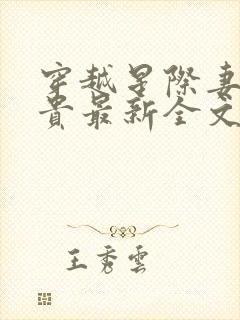 穿越星际妻
贵最新全文
王秀雲